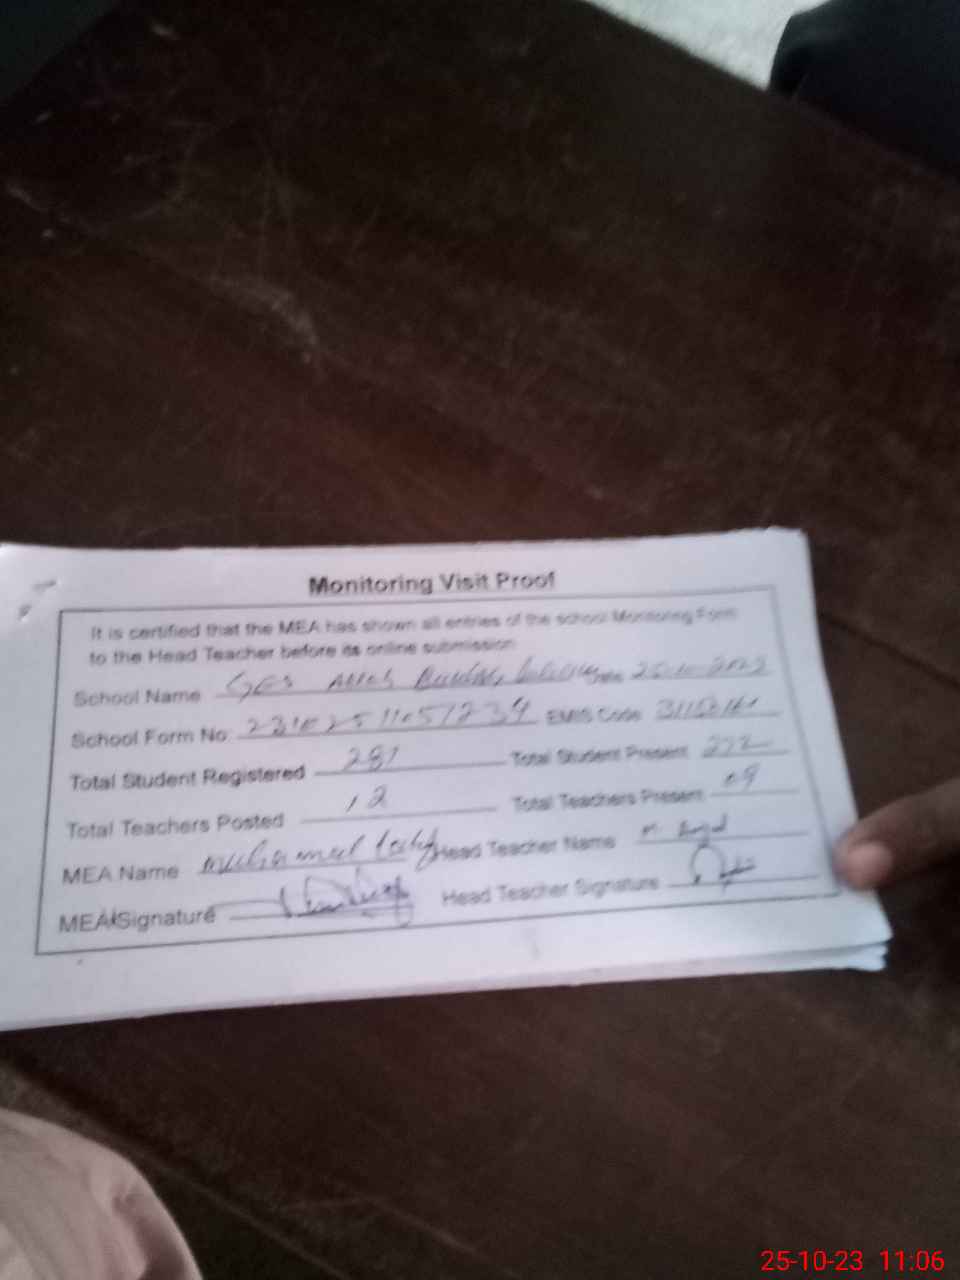 Monitoring Visit Proof
It is certified that the MEA has shown all entries of the school Monitoring Form
to the Head Teacher before its online submission
School Name GES Date 25-10-2023
School Form No 23102511051239 EMIS Code
Total Student Registered 281 Total Student Present 272
Total Teachers Posted 12 Total Teachers Present 09
MEA Name Muhammad Head Teacher Name M.
MEA Signature Head Teacher Signature
25-10-23 11:06